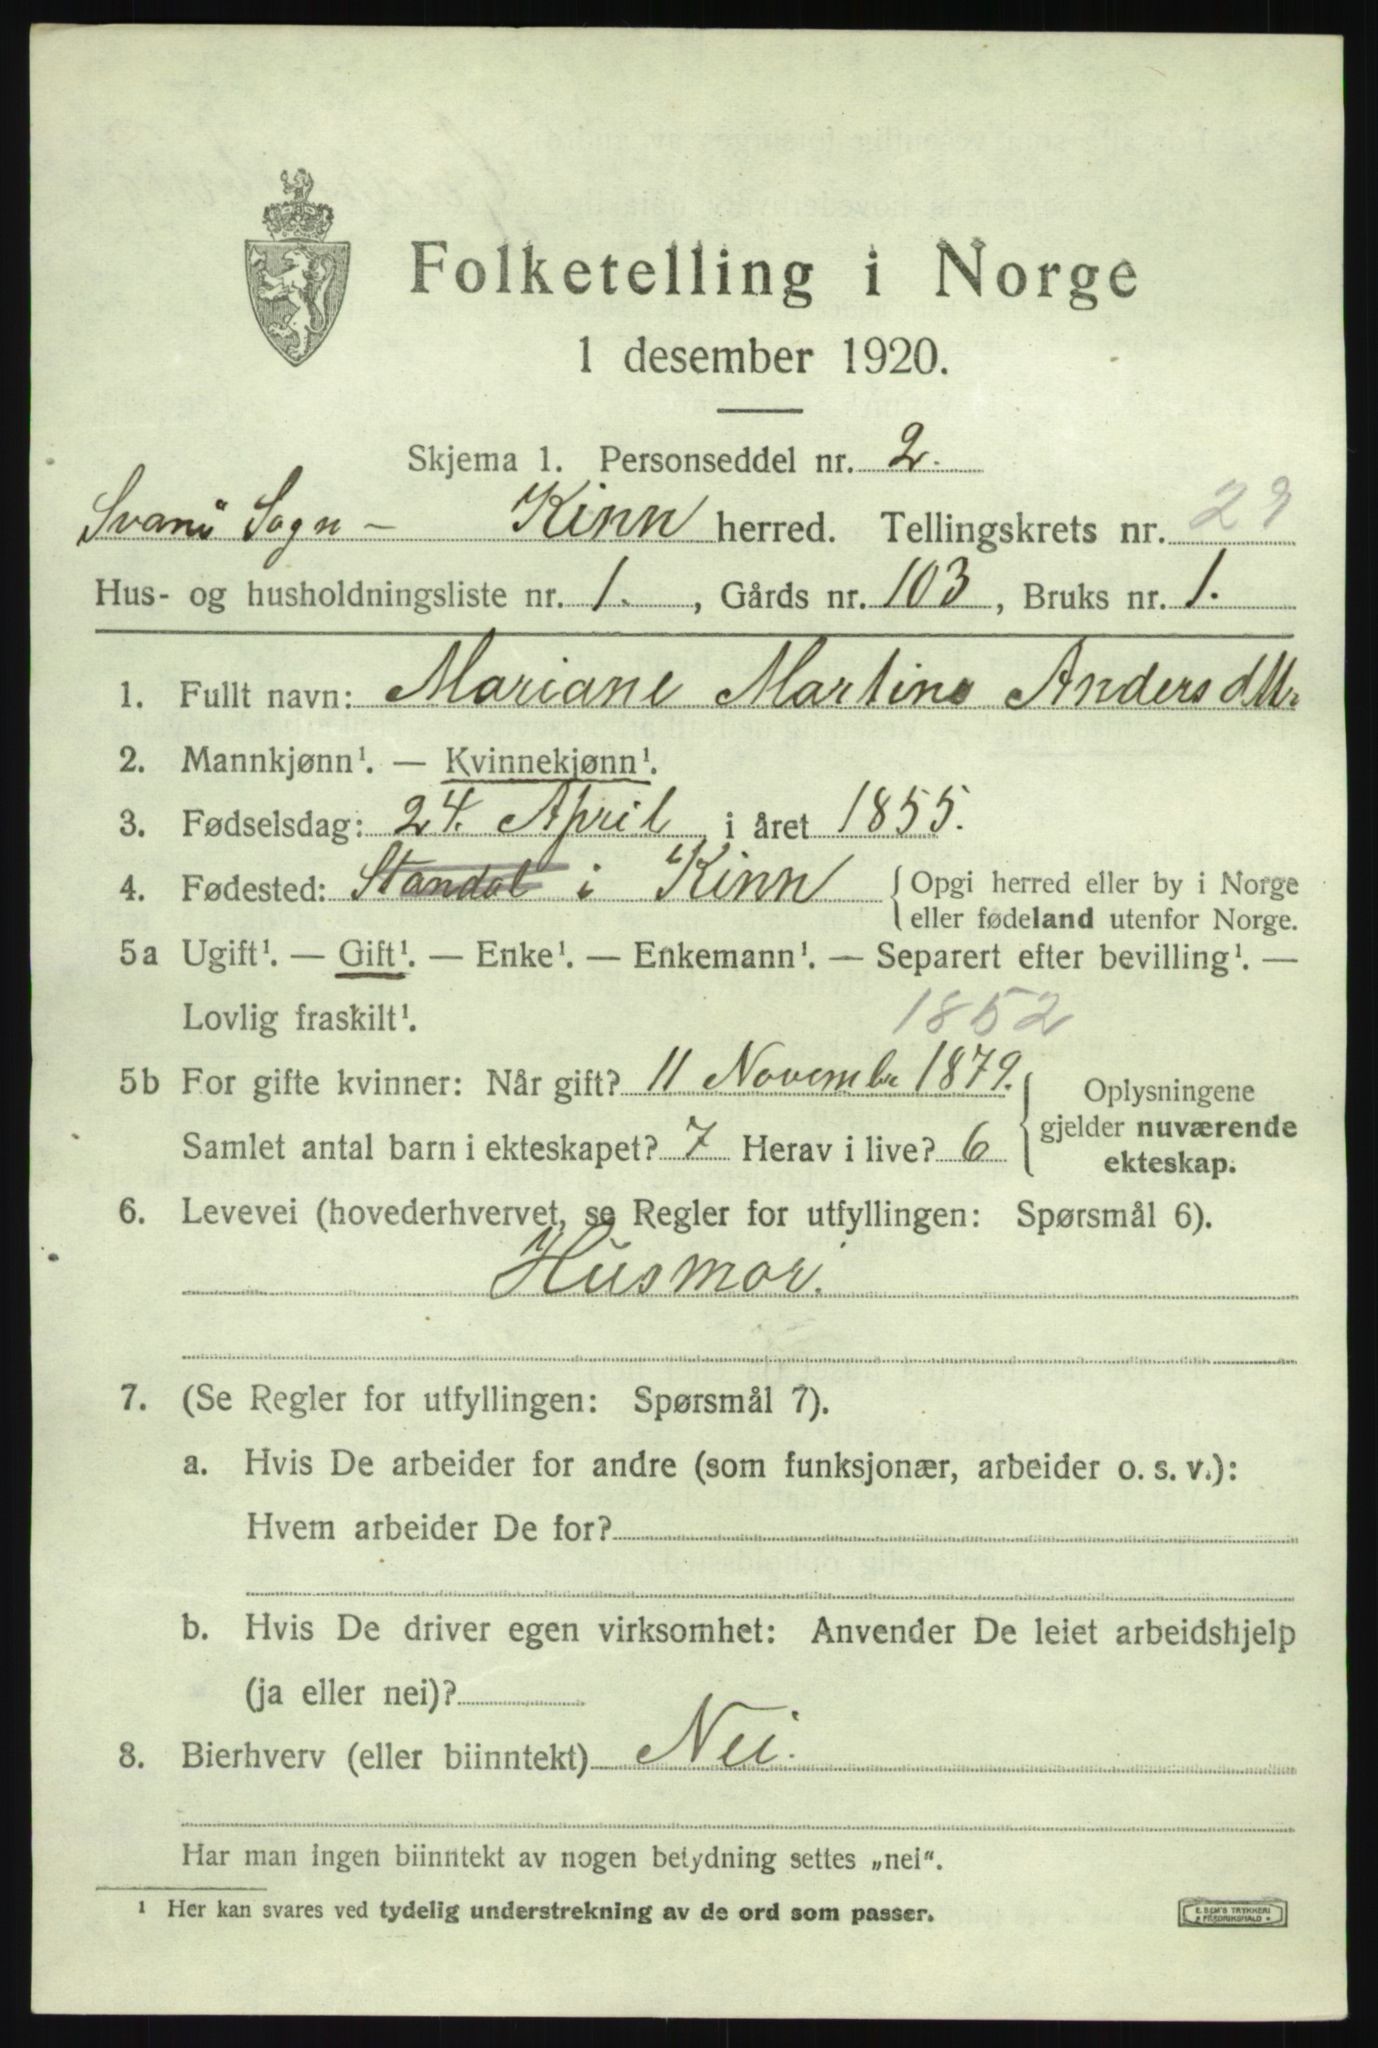 Folketelling i Norge
1 desember 1920.
Skjema 1. Personseddel nr. 2.
Svanø Sogn - Kinn herred. Tellingskrets nr. 29
Hus- og husholdningsliste nr. 1. , Gårds nr. 103 , Bruks nr. 1.
1. Fullt navn: Mariane Martine Andersdttr
2. Mannkjønn¹. — Kvinnekjønn¹.
3. Fødselsdag: 24. April i året 1855.
4. Fødested: Standal i Kinn { Opgi herred eller by i Norge
eller fødeland utenfor Norge.
5a Ugift¹. — Gift¹. — Enke¹. — Enkemann¹. — Separert efter bevilling¹. —
Lovlig fraskilt¹.
1852
5b For gifte kvinner: Når gift? 11 Novembr 1879. { Oplysningene
gjelder nuværende
ekteskap.
Samlet antal barn i ekteskapet? 7 Herav i live? 6
6. Levevei (hovederhvervet, se Regler for utfyllingen: Spørsmål 6).
Husmor.
7. (Se Regler for utfyllingen: Spørsmål 7).
a. Hvis De arbeider for andre (som funksjonær, arbeider o. s. v.):
Hvem arbeider De for?
b. Hvis De driver egen virksomhet: Anvender De leiet arbeidshjelp
(ja eller nei)?
8. Bierhverv (eller biinntekt) Nei.
Har man ingen biinntekt av nogen betydning settes „nei".
¹ Her kan svares ved tydelig understrekning av de ord som passer.
E. SEM'S TRYKKERI
FREDRIKSHALD